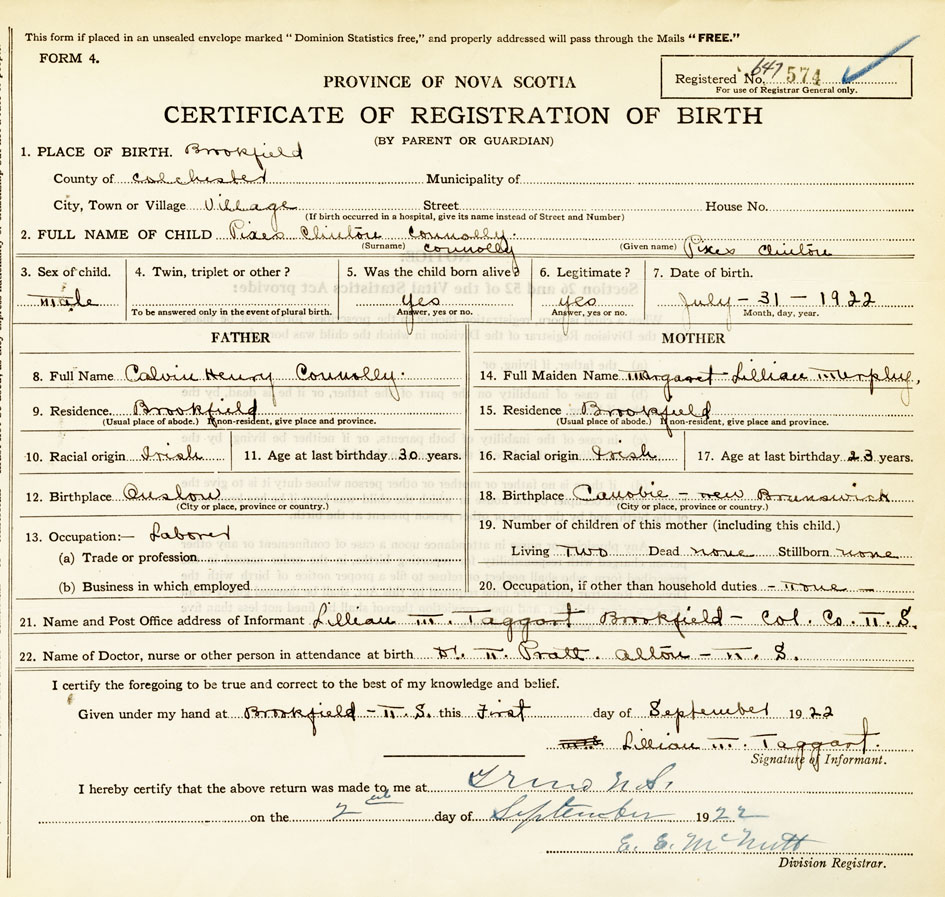 This form if placed in an unsealed envelope marked "Dominion Statistics free," and properly addressed will pass through the Mails "FREE."
FORM 4.
Registered No. 647 574
For use of Registrar General only.
PROVINCE OF NOVA SCOTIA
CERTIFICATE OF REGISTRATION OF BIRTH
(BY PARENT OR GUARDIAN)
1. PLACE OF BIRTH. Brookfield
County of Colchester Municipality of
City, Town or Village Village Street House No.
(If birth occurred in a hospital, give its name instead of Street and Number)
2. FULL NAME OF CHILD Pixes Clinton Connolly.
(Surname) Connolly (Given name) Pixes Clinton
3. Sex of child. 4. Twin, triplet or other? 5. Was the child born alive? 6. Legitimate? 7. Date of birth.
Male yes yes July - 31 - 1922
To be answered only in the event of plural birth. Answer, yes or no. Answer, yes or no. Month, day, year.
FATHER MOTHER
8. Full Name Calvin Henry Connolly. 14. Full Maiden Name Margaret Lillian Murphy,
9. Residence. Brookfield 15. Residence Brookfield
(Usual place of abode.) If non-resident, give place and province. (Usual place of abode.) If non-resident, give place and province.
10. Racial origin Irish 11. Age at last birthday 30 years. 16. Racial origin Irish 17. Age at last birthday 23 years.
12. Birthplace Onslow 18. Birthplace Canobie - New Brunswick
(City or place, province or country.) (City or place, province or country.)
13. Occupation:— Laborer 19. Number of children of this mother (including this child.)
(a) Trade or profession Living Two Dead none Stillborn none
(b) Business in which employed 20. Occupation, if other than household duties - none -
21. Name and Post Office address of Informant Lillian M. Taggart Brookfield - Col. Co. N. S.
22. Name of Doctor, nurse or other person in attendance at birth Dr. N. Pratt. Alton - N. S.
I certify the foregoing to be true and correct to the best of my knowledge and belief.
Given under my hand at Brookfield - N. S. this First day of September 1922
Lillian M. Taggart.
Signature of Informant.
I hereby certify that the above return was made to me at Truro N.S.
on the 2 day of September 1922
E. E. McNutt
Division Registrar.